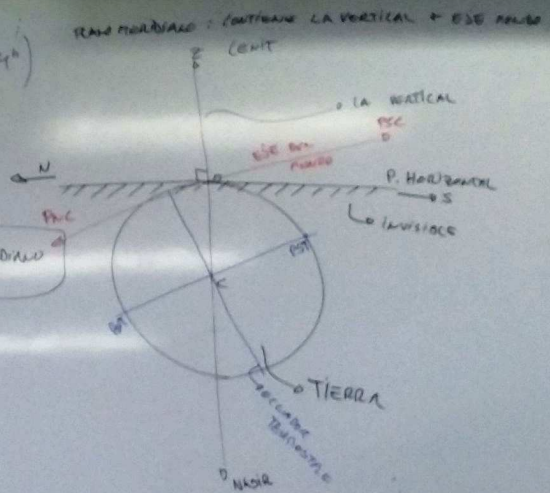 PLANO MERIDIANO : CONTIENE LA VERTICAL + EJE MUNDO
Z
CENIT
LA VERTICAL
PSC
EJE DEL
MUNDO
N
P. HORIZONTAL
S
PNC
INVISIBLE
DIANO
PST
TIERRA
ECUADOR
TERRESTRE
NADIR